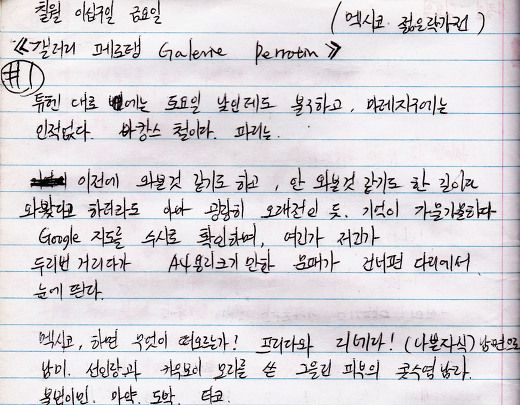 칠월 이십구일 금요일 (멕시코 젊은작가전)
《갤러리 페로탱 Galerie Perrotin》
#1
튀렌 대로 에는 토요일 낮인데도 불구하고, 마레지구에는
인적없다. 바캉스 철이라. 파리는.
이전에 와본것 같기도 하고, 안 와본것 같기도 한 길이다
와봤다고 하더라도 아마 굉장히 오래전인 듯. 기억이 가물가물하다
Google 지도를 수시로 확인하며, 여긴가 저긴가
두리번 거리다가 A4용지크기 만한 문패가 건너편 다리에서
눈에 띈다.
멕시코, 하면 무엇이 떠오르는가! 프리다와 리베라! (나쁜자식) 남편으로
남미. 선인장과 카우보이 모자를 쓴 그을린 피부의 콧수염 남자.
불법이민. 마약. 도박. 타코.